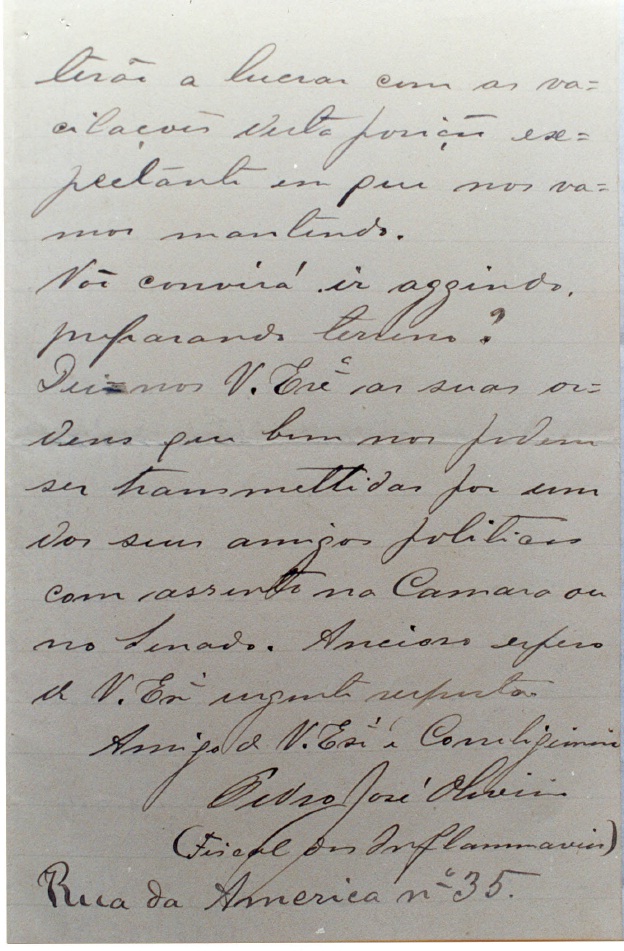 terão a lucrar com as va=
cilações desta posição ex=
pectante em que nos va=
mos mantendo.
Não convirá ir aggindo,
preparando terreno?
Dei=nos V. Exª as suas or=
dens que bem nos podem
ser transmettidas por um
dos seus amigos politicos
com assento na Camara ou
no Senado. Ancioso espero
de V. Exª urgente resposta
Amigo de V. Exª e Correligionario
Pedro José Oliveira
(Fiscal dos Inflammaveis)
Rua da America nº 35.